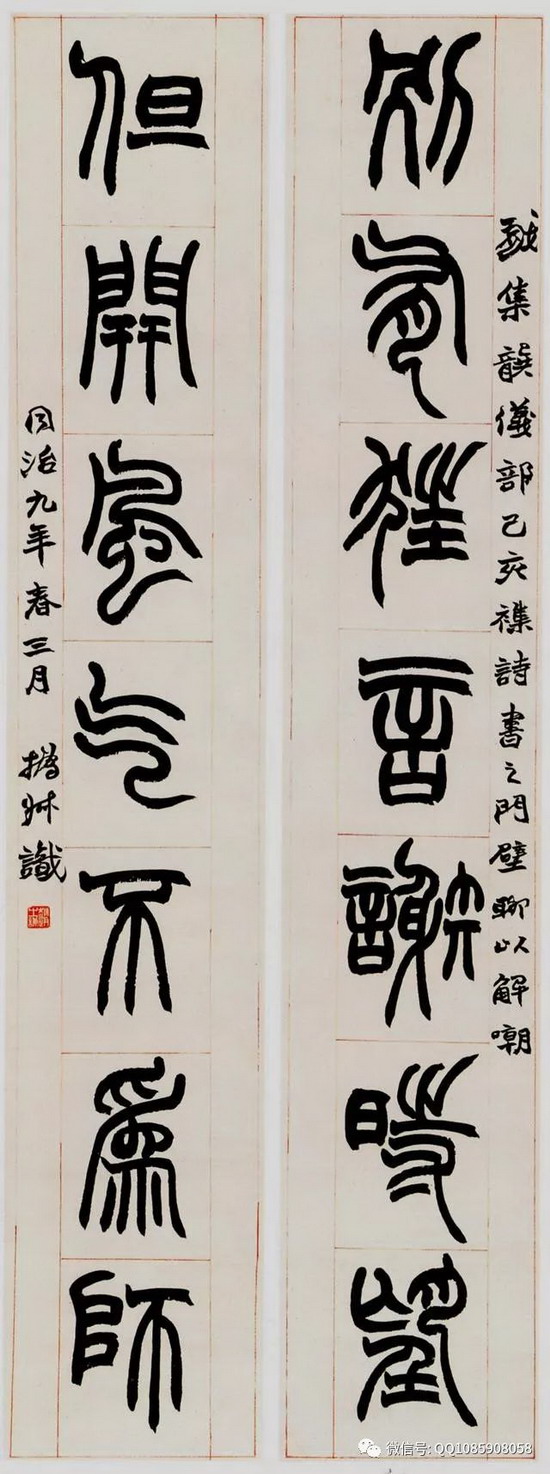 戲集龔儀部己亥襍詩書之門壁聊以解嘲
別有狂言謝時望
但開風气不為師
同治九年春三月 撝叔識
微信号: QQ1085908058